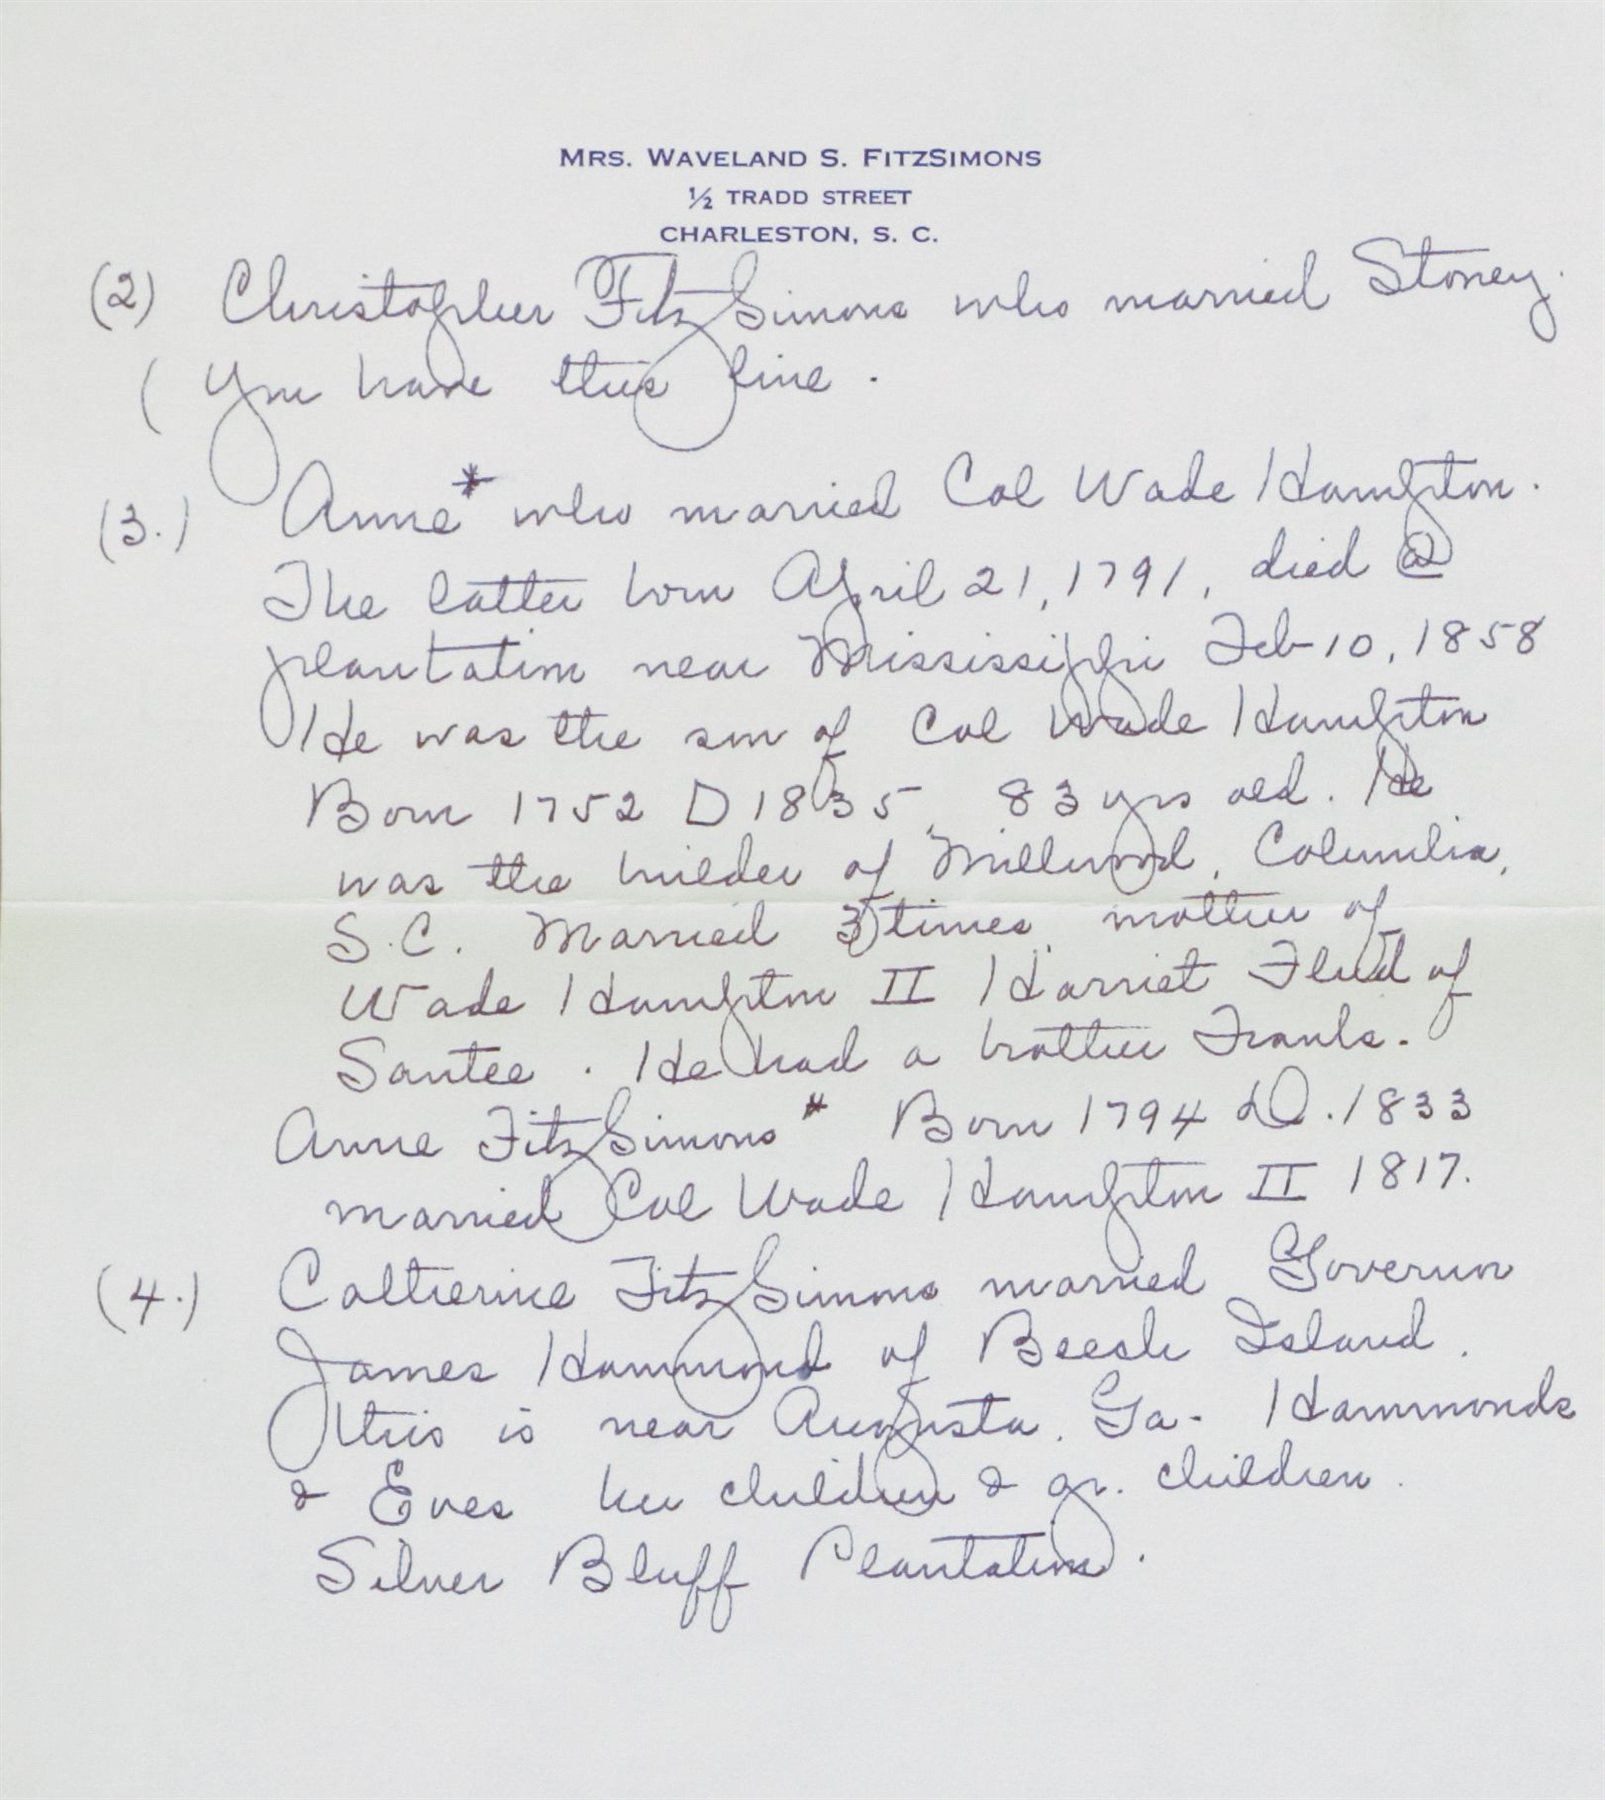 MRS. WAVELAND S. FITZSIMONS
½ TRADD STREET
CHARLESTON, S. C.
(2) Christopher FitzSimons who married Stoney.
( You have this line.
(3.) Anne* who married Col Wade Hampton.
The latter born April 21, 1791, died @
plantation near Mississippi Feb 10, 1858
He was the son of Col Wade Hampton
Born 1752 D 1835, 83 yrs old. He
was the builder of Millwood, Columbia,
S.C. Married 3 times mother of
Wade Hampton II Harriet Flud of
Santee. He had a brother Frank.
Anne FitzSimons* Born 1794 D. 1833
married Col Wade Hampton II 1817.
(4.) Catherine FitzSimons married Governor
James Hammond of Beech Island.
this is near Augusta, Ga. Hammonds
& Eves her children & gr. children.
Silver Bluff Plantation.